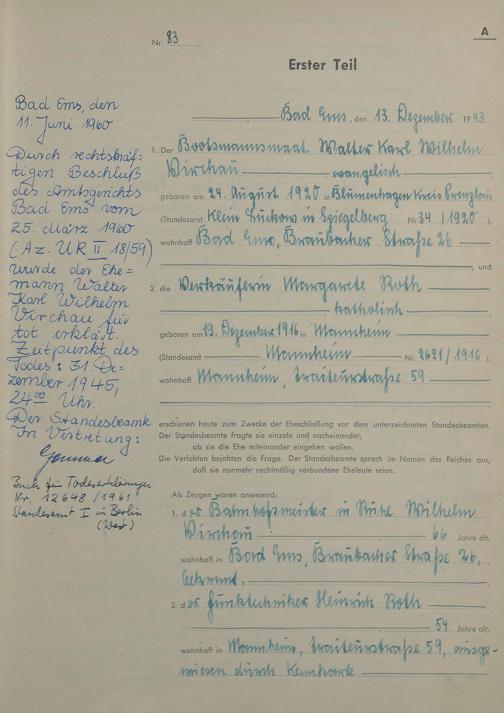 Nr. 83
A
Erster Teil
Bad Ems, den
11. Juni 1960
Durch rechtskräf-
tigen Beschluß
des Amtsgerichts
Bad Ems vom
25. März 1960
(Az. UR II 18/59)
wurde der Ehe-
mann Walter
Karl Wilhelm
Virchau für
tot erklärt.
Zeitpunkt des
Todes: 31. De-
zember 1945,
24oo Uhr.
Der Standesbeamte
In Vertretung:
Buch für Todeserklärungen
Nr. 12648/1961
Standesamt I in Berlin
(West)
Bad Ems, den 13. Dezember 1943.
1. Der Bootsmannsmaat Walter Karl Wilhelm
Virchau evangelisch
geboren am 24. August 1920 in Blumenhagen Kreis Prenzlau
(Standesamt Klein Luckow in Spiegelberg Nr. 34/1920)
wohnhaft Bad Ems, Braubacher Straße 26
, und
2. die Verkäuferin Margarete Roth
katholisch
geboren am 19. Dezember 1916 in Mannheim
(Standesamt Mannheim Nr. 2621/1916)
wohnhaft Mannheim, Traiteurstraße 59
erschienen heute zum Zwecke der Eheschließung vor dem unterzeichneten Standesbeamten.
Der Standesbeamte fragte sie einzeln und nacheinander,
ob sie die Ehe miteinander eingehen wollen.
Die Verlobten bejahten die Frage. Der Standesbeamte sprach im Namen des Reiches aus,
daß sie nunmehr rechtmäßig verbundene Eheleute seien.
Als Zeugen waren anwesend:
1. der Bahnhofsmeister in Ruhe Wilhelm
Virchau 66 Jahre alt,
wohnhaft in Bad Ems, Braubacher Straße 26,
bekannt,
2. der Funktechniker Heinrich Roth
54 Jahre alt,
wohnhaft in Mannheim, Traiteurstraße 59, ausge-
wiesen durch Kennkarte